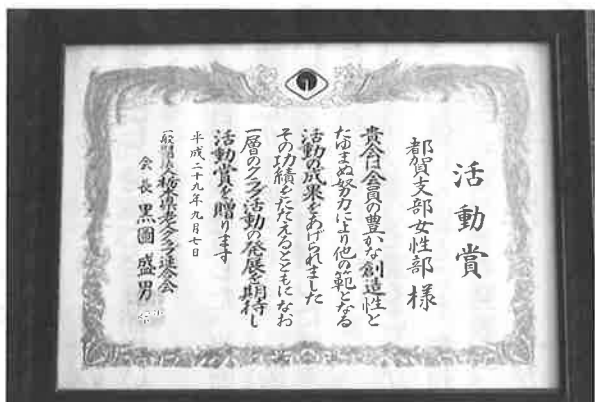 活動賞
都賀支部女性部 様
貴会は会員の豊かな創造性と
たゆまぬ努力により他の範となる
活動の成果をあげられました
その功績をたたえるとともになお
一層のクラブ活動の発展を期待し
活動賞を贈ります
平成二十九年九月七日
一般財団法人栃木県老人クラブ連合会
会長 黒圖盛男